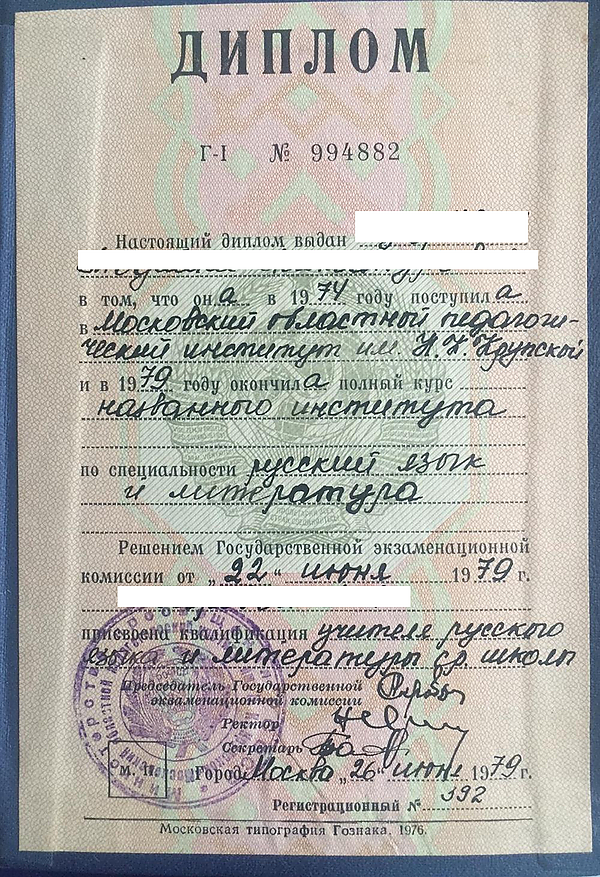 ДИПЛОМ
Г-I № 994882
Настоящий диплом выдан
в том, что она в 1974 году поступила
в Московский областный педагоги-
ческий институт им. Н. К. Крупской
и в 1979 году окончила полный курс
названного института
по специальности русский язык
и литература
Решением Государственной экзаменационной
комиссии от „22“ июня 1979 г.
присвоена квалификация учителя русского
языка и литературы ср. школы
Председатель Государственной
экзаменационной комиссии
Ректор
Секретарь
М. П. Город Москва „26“ июня 1979 г.
Регистрационный № 392
Московская типография Гознака. 1976.